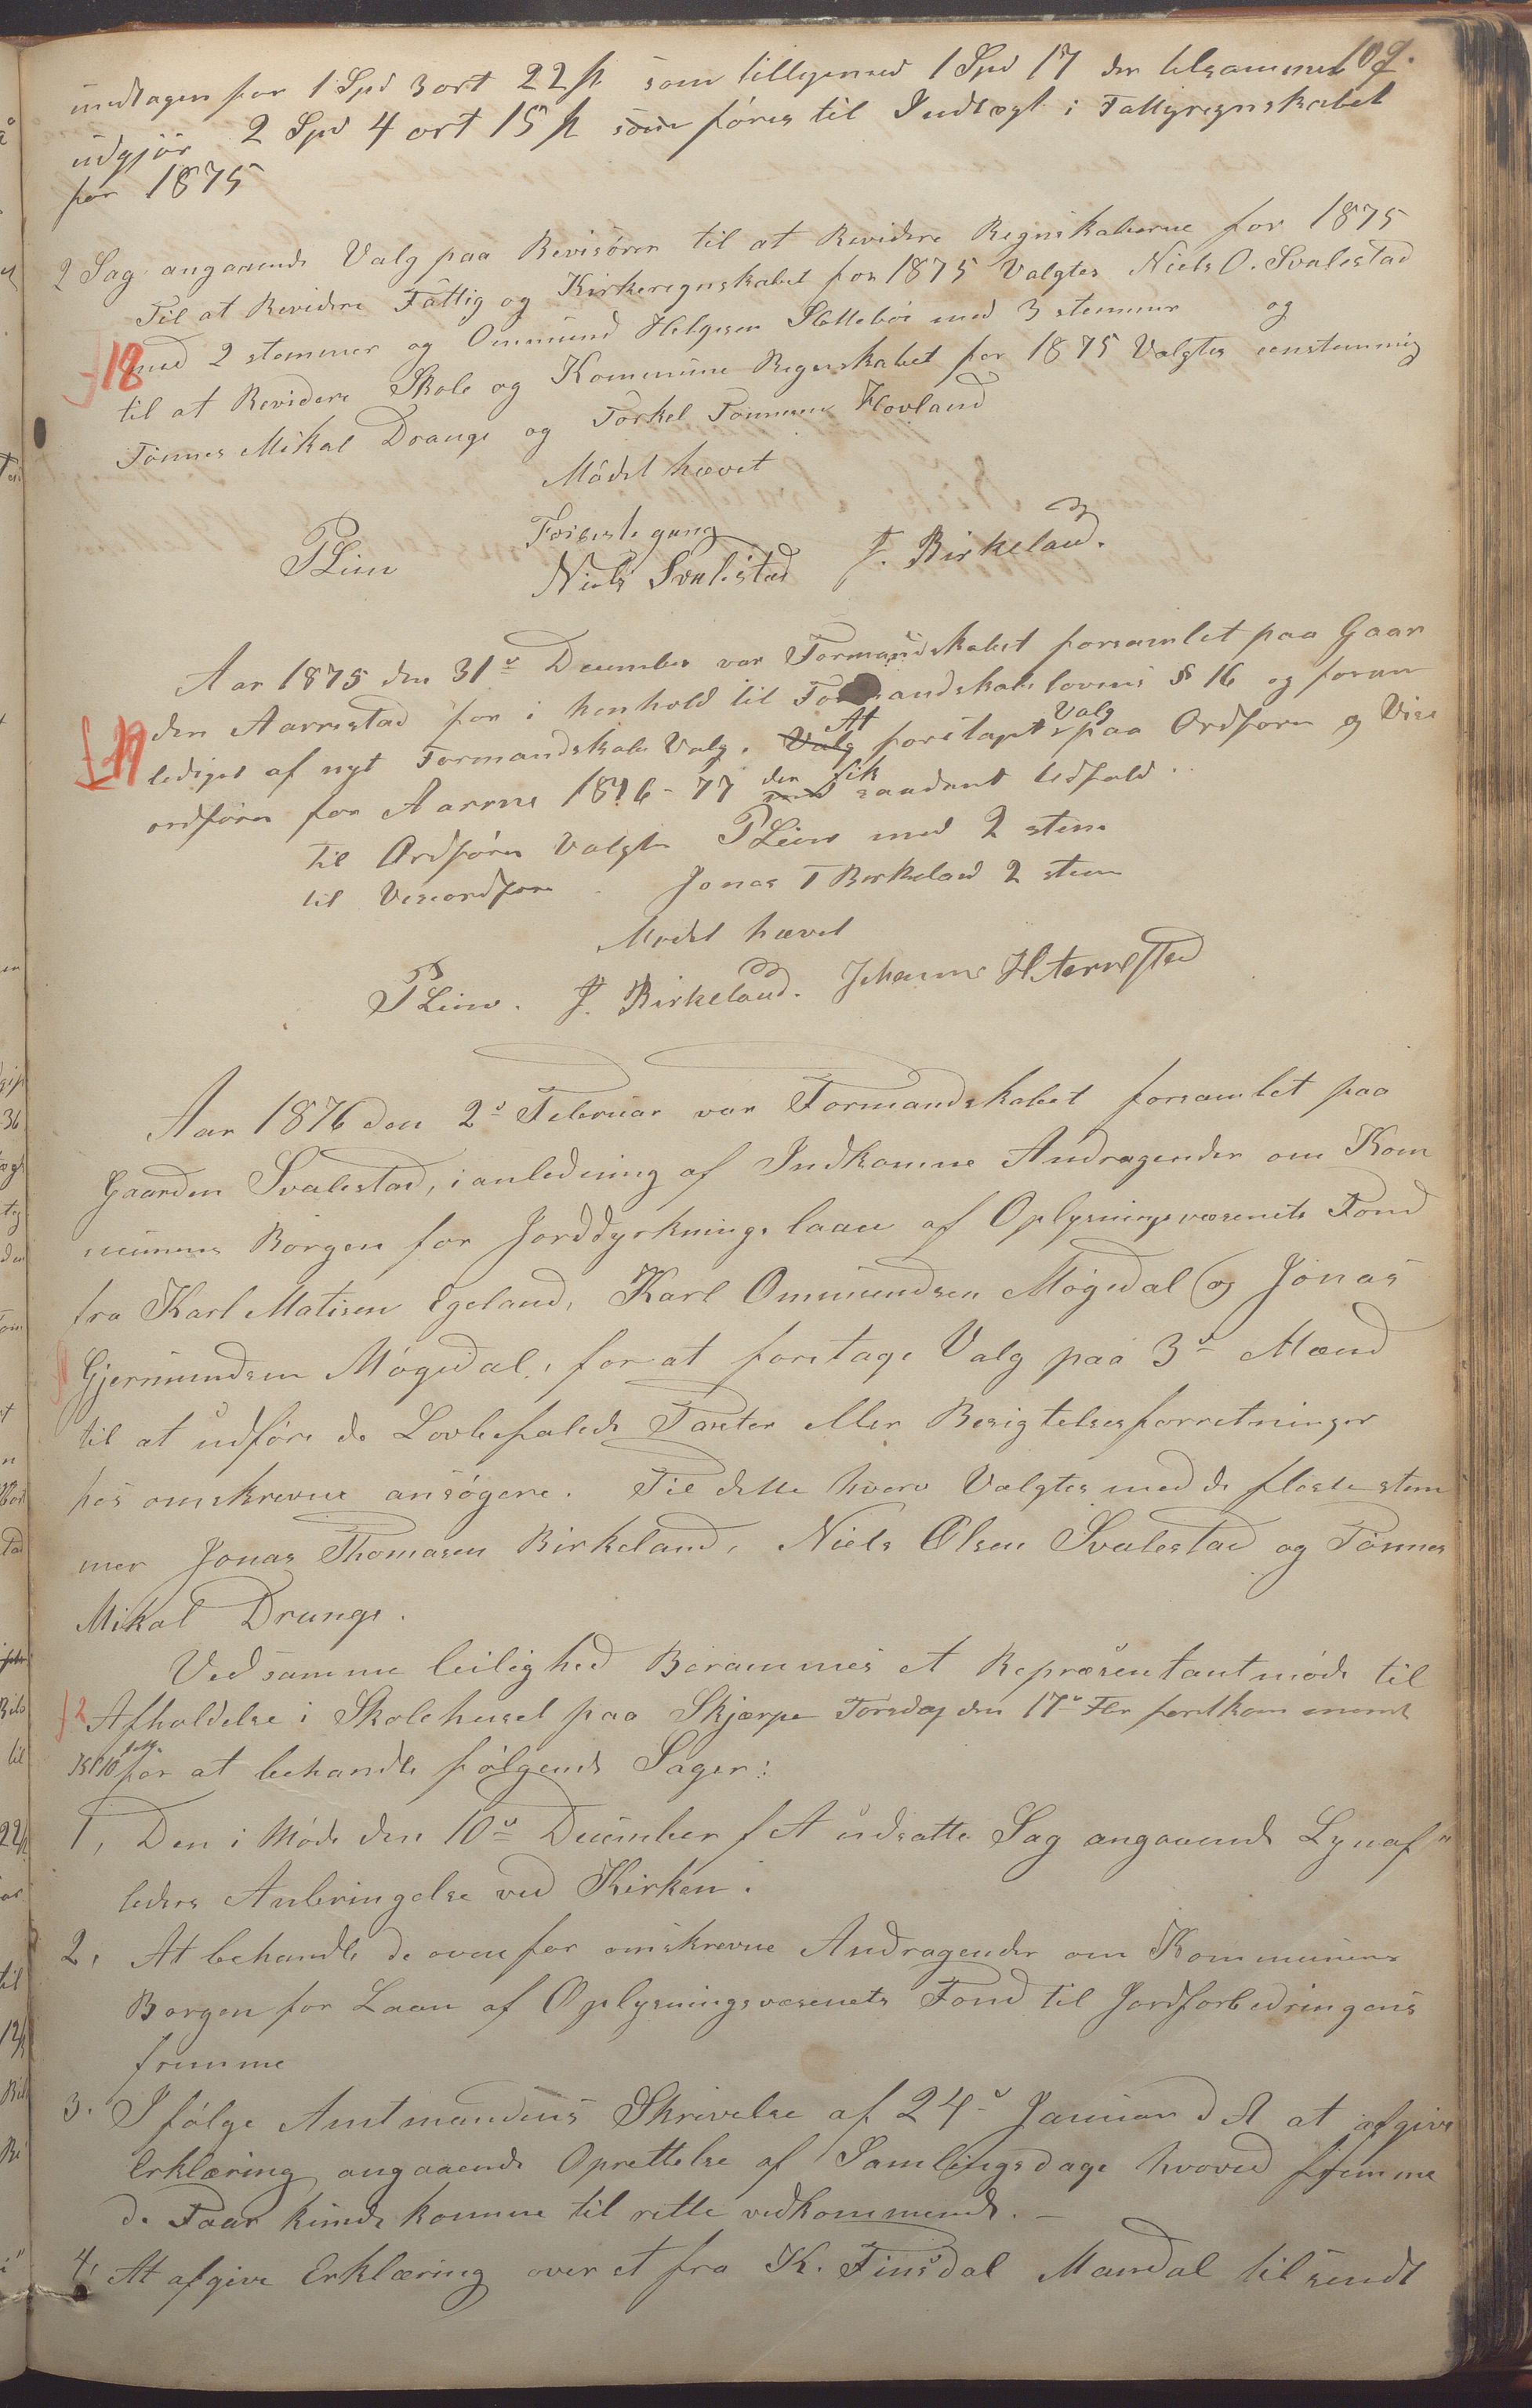 109.
undtagen for 1 Spd 3 ort 22 ſk som tillegemed 1 Spd 17 der tilsammen
udgjør 2 Spd 4 ort 15 ſk som føres til Indtægt i Fattigregnskabet
for 1875
2 Sag angaaende Valg paa Revisører til at Revidere Regnskaberne for 1875
Til at Revidere Fattig og Kirkeregnskabet for 1875 Valgtes Niels O. Svalestad
18 med 2 stemmer og Ommund Helgesen Slettebøe med 3 stemmer og
til at Revidere Skole og Kommune Regnskabet for 1875 Valgtes eenstemmig
Tønnes Mikal Drange og Torkel Tønnesen Hovland
Mødet hævet
PLiew
Niels Svalestad J. Birkeland.
Aar 1875 den 31te December var Formandskabet forsamlet paa Gaar
den Aarrestad for i henhold til Formandskabslovens § 16 og foran
19 lediget af nyt Formandskabs Valg. Valg At foretages Valg paa Ordfører og Vice
ordfører for Aarene 1876-77 den fik saadant Udfald.
Til Ordfører Valgtes PLiew med 2 stem
til Viceordfører Jonas T Birkeland 2 stem
Mødet hævet
PLiew. J. Birkeland. Johannes
Aar 1876 den 2de Februar var Formandskabet forsamlet paa
Gaarden Svalestad, i anledning af Indkomne Andragender om Kom
munens Borgen for Jorddyrkningslaan af Oplysningsvæsenets Fond
fra Karl Matisen Egeland, Karl Ommundsen Møgedal og Jonas
Gjermundsen Møgedal, for at foretage Valg paa 3de Mænd
til at udføre de Lovbefalede Taxter eller Besigtelsesforretninger
hos omskrevne ansøgere. Til dette hverv Valgtes med de fleste stem
mer Jonas Thomasen Birkeland, Niels Olsen Svalestad og Tønnes
Mikal Drange.
Ved samme leilighed Berammes et Repræsentantmøde til
2 Afholdelse i Skolehuset paa Skjærpe Torsdag den 17de Febr førstkommende
Kl 10 form. for at behandle følgende Sager:
1, Den i Møde den 10de December f A udsatte Sag angaaende Lynaf"
leders Anbringelse ved Kirken.
2, At behandle de ovenfor omskrevne Andragender om Kommunens
Borgen for Laan af Oplysningsvæsenets Fond til Jordforbedringens
fremme
3. Ifølge Amtmandens Skrivelse af 24de Januar d A at afgive
Erklæring angaaende Oprettelse af Samlingsdage hvorved fremme
de Faar kunde komme til rette vedkommende. -
4, At afgive Erklæring over et fra K. Finsdal Mandal tilsendt